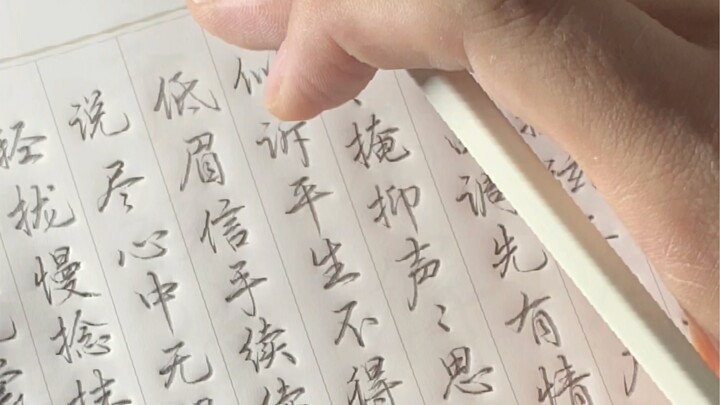 调先有情
掩抑声〻思
似诉平生不得
低眉信手续续
说尽心中无
轻拢慢捻